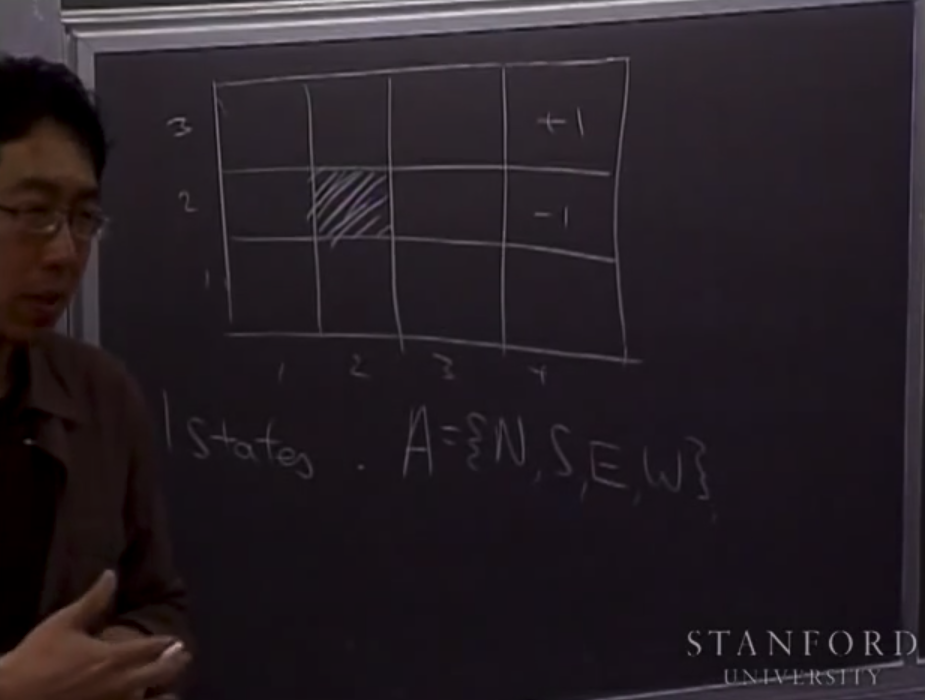 3 +1
2 -1
1
1 2 3 4
1 states . A={N,S,E,W}
STANFORD
UNIVERSITY